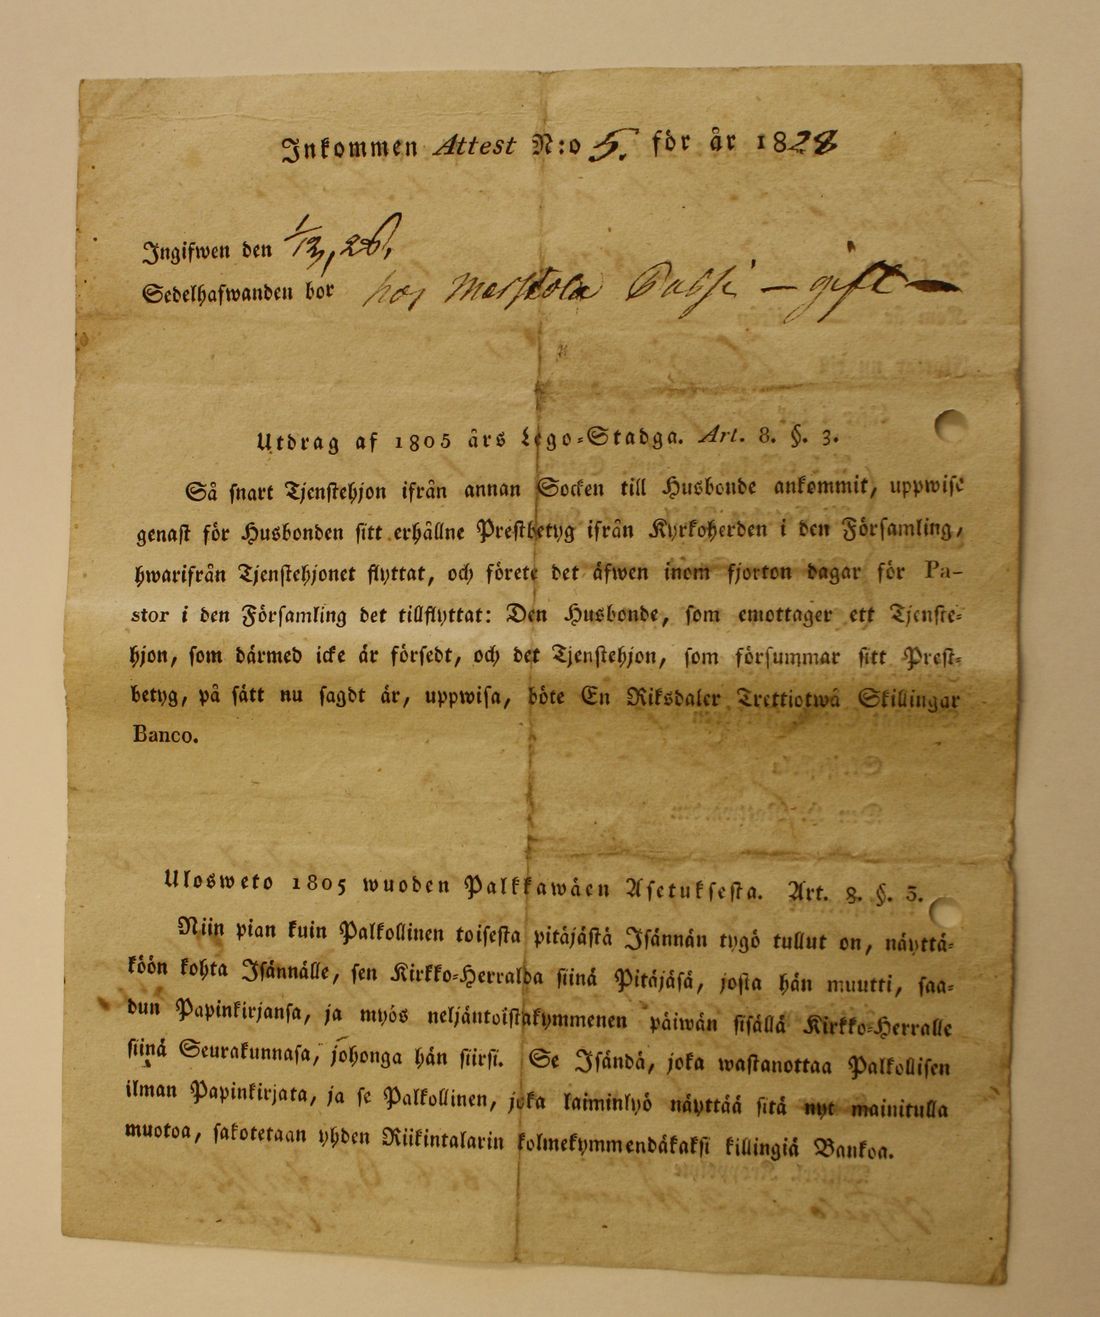 Inkommen Attest N:o 5. för år 1828
Ingifwen den 1/12, 28.
Sedelhafwanden bor hos — gift —
Utdrag af 1805 års Lego-Stadga. Art. 8. §. 3.
Så snart Tjenstehjon ifrån annan Socken till Husbonde ankommit, uppwise
genast för Husbonden sitt erhållne Prestbetyg ifrån Kyrkoherden i den Församling,
hwarifrån Tjenstehjonet flyttat, och förete det äfwen inom fjorton dagar för Pa-
stor i den Församling det tillflyttat: Den Husbonde, som emottager ett Tjenste-
hjon, som därmed icke är försedt, och det Tjenstehjon, som försummar sitt Prest-
betyg, på sätt nu sagdt är, uppwisa, böte En Riksdaler Trettiotwå Skillingar
Banco.
Ulosweto 1805 wuoden Palkkawäen Asetuksesta. Art. 8. §. 3.
Niin pian kuin Palkollinen toisesta pitäjästä Isännän tygö tullut on, näyttä-
köön kohta Isännälle, sen Kirkko-Herralda siinä Pitäjäsä, josta hän muutti, saa-
dun Papinkirjansa, ja myös neljäntoistakymmenen päiwän sisällä Kirkko-Herralle
siinä Seurakunnasa, johonga hän siirsi. Se Isändä, joka wastanottaa Palkollisen
ilman Papinkirjata, ja se Palkollinen, joka laiminlyö näyttää sitä nyt mainitulla
muotoa, sakotetaan yhden Riikintalarin kolmekymmendäkaksi killingiä Bankoa.